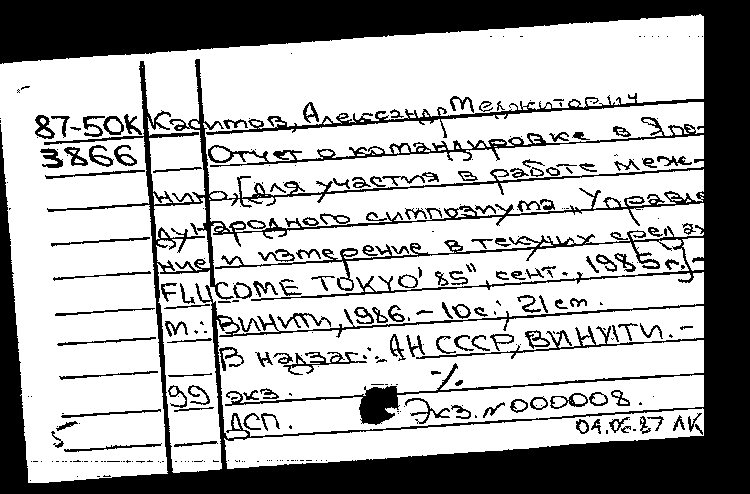 87-50К Касимов, Александр Меджитович
3866 Отчет о командировке в Япо-
нию, [для участия в работе меж-
дународного симпозиума „Управле
ние и измерение в текучих средах
FLUCOME TOKYO' 85", сент., 1985 г.] -
М.: ВИНИТИ, 1986. - 10 с.; 21 см.
В надзаг.: АН СССР, ВИНИТИ. -
99 экз. ·/.
ДСП. Экз. № 000008.
04.06.87 ЛК